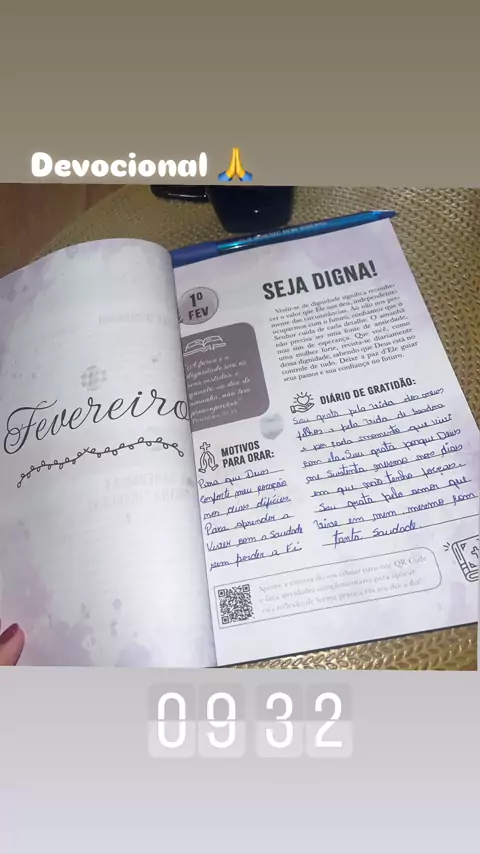 Devocional 🙏
Fevereiro
1º
FEV
SEJA DIGNA!
Vestir-se de dignidade significa reconhe-
cer o valor que Ele nos deu, independente-
mente das circunstâncias. Ao não nos pre-
ocuparmos com o futuro, confiamos que o
Senhor cuida de cada detalhe. O amanhã
não precisa ser uma fonte de ansiedade,
mas sim de esperança. Que você, como
uma mulher forte, revista-se diariamente
dessa dignidade, sabendo que Deus está no
controle de tudo. Deixe a paz d'Ele guiar
seus passos e sua confiança no futuro.
"A força e a
dignidade são os
seus vestidos e,
quanto ao dia de
amanhã, não tem
preocupações."
MOTIVOS
PARA ORAR:
Para que Deus
conforte meu coração
nos dias difíceis
Para aprender a
Viver com a Saudade
sem perder a Fé
DIÁRIO DE GRATIDÃO:
Sou grata pela vida dos meus
filhos e pela vida de
e por todo momento que vivi
com ela. Sou grata porque Deus
me sustenta mesmo nos dias
em que não tenho forças.
Sou grata pelo amor que
vive em mim mesmo com
tanta Saudade.
Aponte a câmera do seu celular para este QR Code
e faça atividades complementares para aplicar
esta reflexão de forma prática em seu dia a dia!
0932